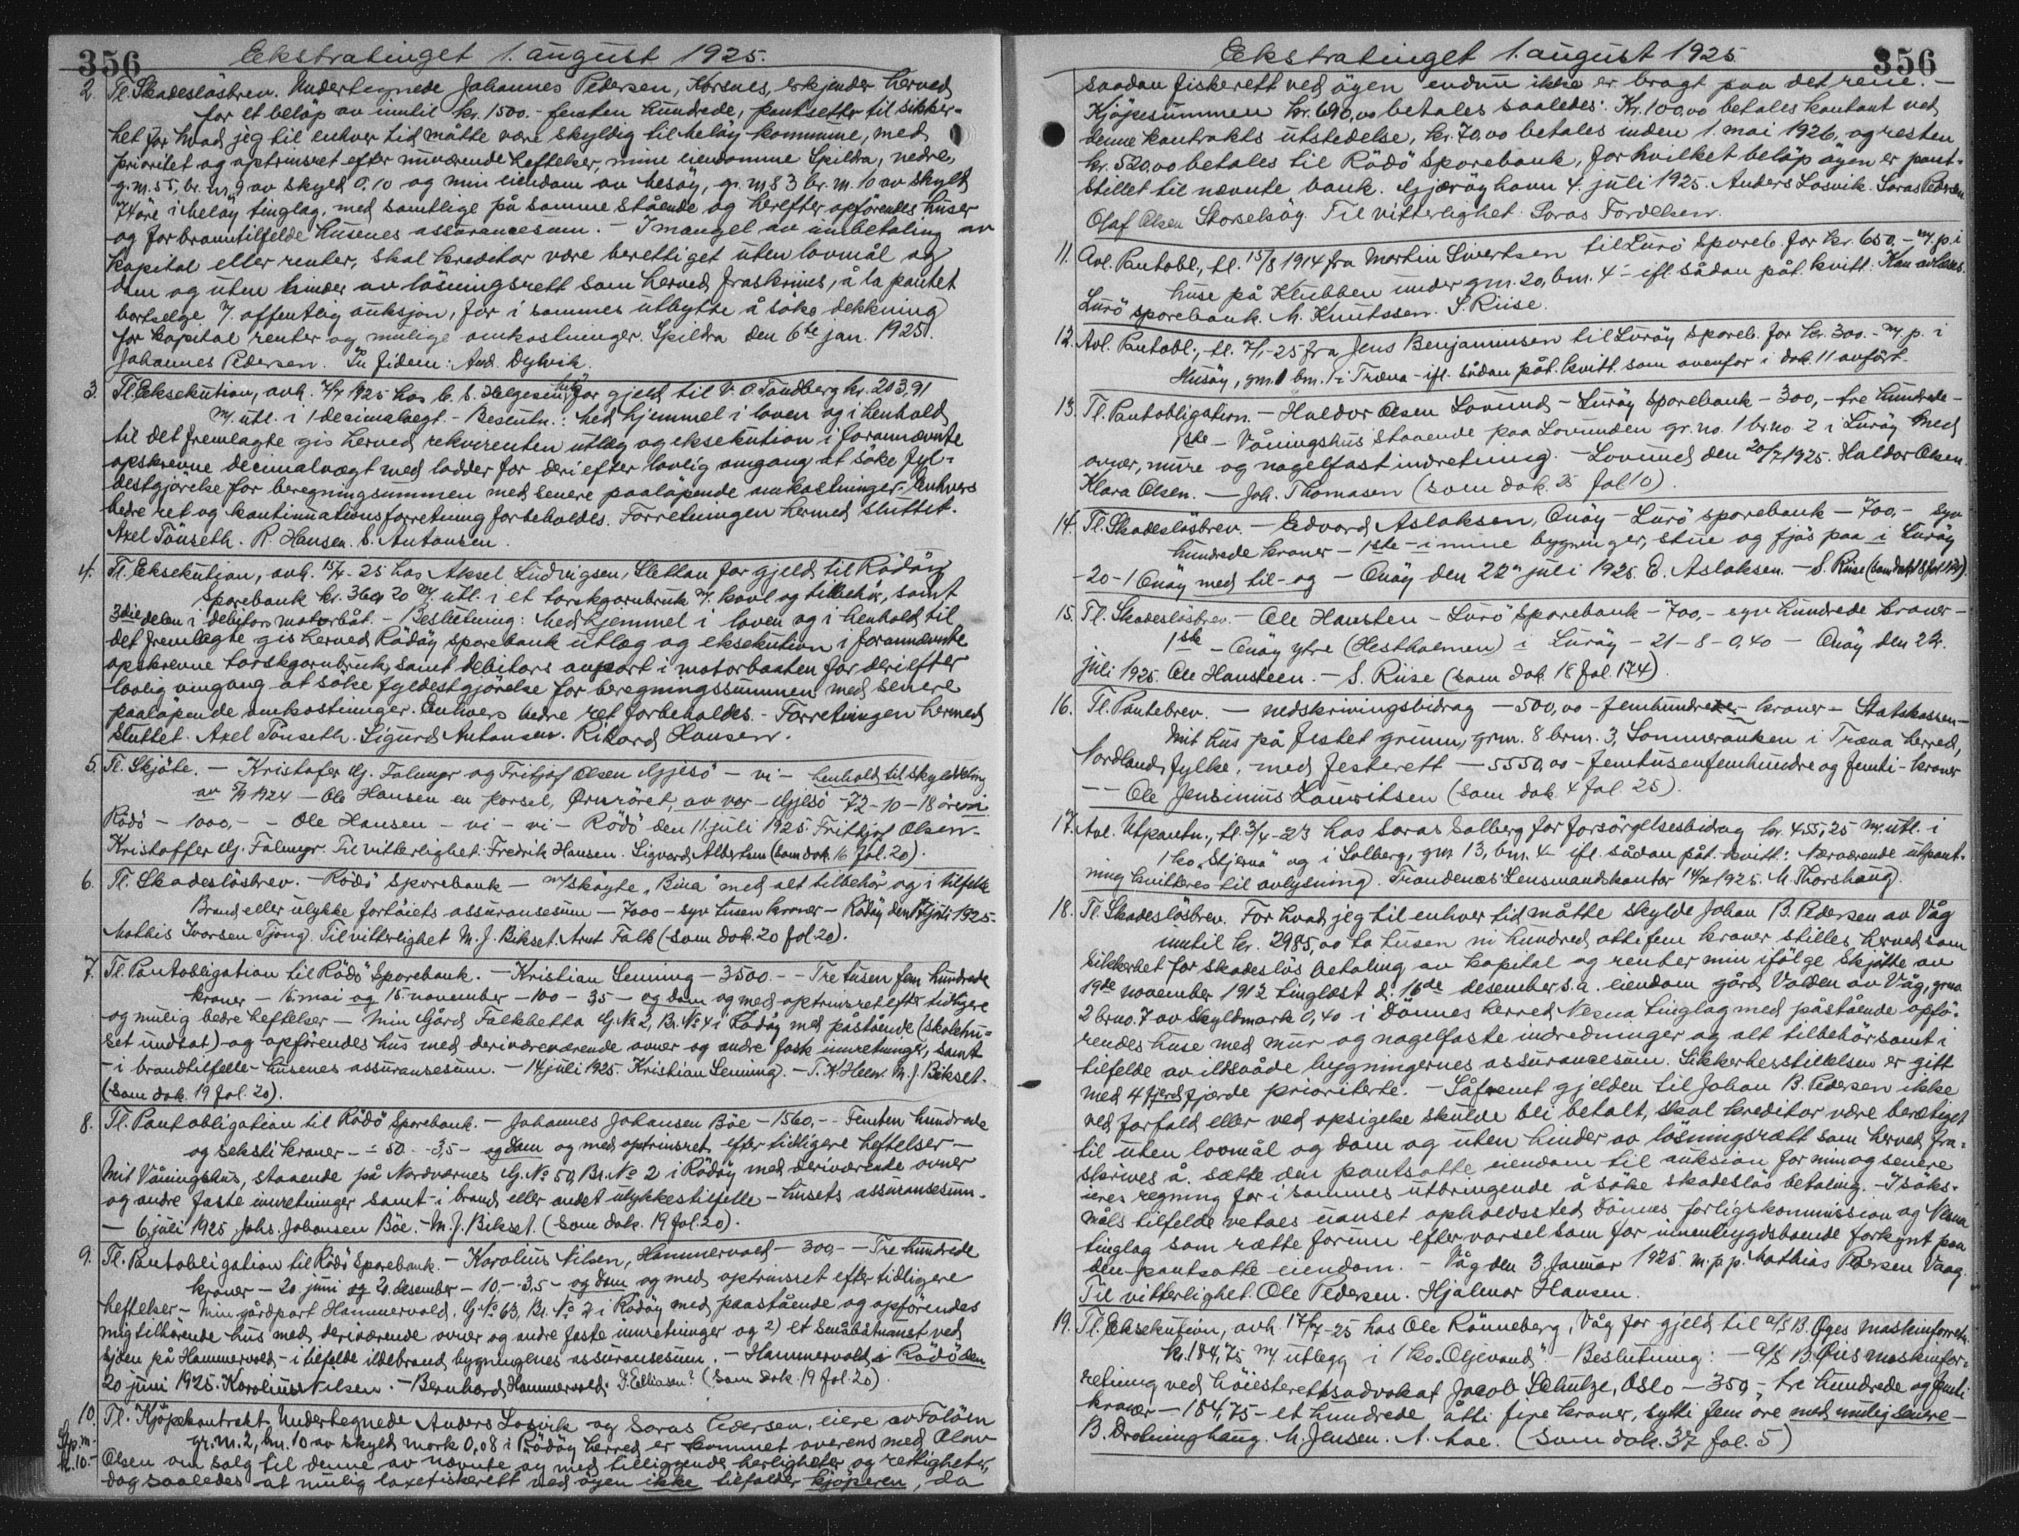 356
Ekstratinget 1. august 1925.
2. Tl. Skadeslösbrev. Undertegnede Johannes Pedersen, Korsnes, erkjender herved
for et belöp av inntil kr. 1500.- femten hundrede, pantsetter til sikker-
het for hvad jeg til enhver tid måtte være skyldig til Melöy kommune, med
prioritet og optrinsret efter nuværende heftelser, mine eiendomme Spildra, nedre,
g.nr. 55, br. nr. 9 av skyld 0.10 og min eiendom av Mesöy, gr. nr. 83 br. nr. 10 av skyld
74 öre i Melöy tinglag, med samtlige på samme stående og herefter opförendes huser
og for branntilfelde husenes assurancesum. - I mangel av innbetaling av
kapital eller renter, skal kreditor være berettiget uten lovmål og
dom og uten hinder av lösningsrett som herved fraskrives, å la pantet
bortselge v/ offentlig auksjon, for i sammes utbytte å söke dekkning
for kapital renter og mulige omkostninger. Spildra den 6te jan. 1925.
Johannes Pedersen. In fidem: And. Dylvik.
3. Tl. Eksekution, avh. 7/7 1925 hos C. E. Helgesen, for gjeld til V. O. Tandberg kr. 203,91
m/ utl. i 1 decimalvegt. - Beslutn.: Med hjemmel i loven og i henhold
til det fremlagte gis herved rekvirenten utlæg og eksekution i forannævnte
opskrevne decimalvægt med lodder for deri efter lovlig omgang at söke fyl-
destgjørelse for beregningsummen med senere paalöpende omkostninger. Enhvers
bedre ret og kontinuationsforretning forbeholdes. Forretningen hermed sluttet.
Axel Tönseth. R. Hansen. S. Antonsen.
4. Tl. Eksekution, avh. 15/7-25 hos Aksel Ludvigsen, Slettan for gjeld til Rödöy
Sparebank kr. 369.20 m/ utl. i et torskgarnbruk m. kavl og tilbehör, samt
3die delen i debitors motorbåt. - Beslutning: Med hjemmel i loven og i henhold til
det fremlagte gis herved Rödöy sparebank utlæg og eksekution i forannævnte
opskrevne torskgarnbruk samt debitors anpart i motorbaaten for deri efter
lovlig omgang at söke fyldestgjörelse for beregningssummen med senere
paalöpende omkostninger. Enhvers bedre ret forbeholdes. - Forretningen hermed
sluttet. Axel Tönseth. Sigurd Antonsen. Rikard Hansen.
5. Tl. Skjöte. - Kristofer Gj. Falmyr og Fritjof Olsen Gjesö - vi - henhold til skylddeling
av 5/9 1924 - Ole Hansen en parsel, Örnröret, av vor - Gjesö 72-10-18 öre i
Rödö - 1000,- - Ole Hansen - vi - vi - Rödö den 11 juli 1925. Frithjof Olsen.
Kristoffer Gj. Falmyr. Til vitterlighet: Fredrik Hansen. Sigvard Albertsen (som dok. 16 fol. 20).
6. Tl. Skadeslösbrev. - Rödö Sparebank - m/skøyte "Bina" med alt tilbehör og i tilfelde
Brand eller ulykke fartöiets assuransesum - 7000 - syv tusen kroner - Rödöy den 17 juli 1925.
Mathis Ivarsen Tjong. Til vitterlighet M. J. Bikset. Arnt Falk (som dok. 20 fol. 20).
7. Tl. Pantobligation til Rödö Sparebank. - Kristian Lenning - 3500 - - Tre tusen fem hundrede
kroner - 15. mai og 15. november - 100 - 3,5 - og dom og med optrinsret efter tidligere
og mulig bedre heftelser - min Gård Falkhetta G.No 2, Br.No 4 i Rödöy med påstående (skolehu-
set undtat) og opförendes hus med deriværeværende ovner og andre faste innretninger, samt
- i brandtilfelle - husenes assuransesum. - 14 juli 1925. Kristian Lenning. - S. K. Heen. M. J. Bikset.
(som dok. 19 fol. 20).
8. Tl. Pantobligation til Rödö Sparebank. - Johannes Johansen Böe - 1560,- - Femten hundrede
og seksti kroner - - 50 - 3,5 - og dom og med optrinsret efter tidligere heftelser -
mit Våningshus, staaende på Nordværnes G.No 50, Br. No 2 i Rödöy med deriværende ovner
og andre faste innretninger samt - i brand eller andet ulykkestilfelle - husets assuransesum.
- 6 juli 1925 Johs. Johansen Böe. - M. J. Bikset. (som dok. 19 fol. 20).
9. Tl. Pantobligation til Rödö Sparebank. - Karolius Nilsen, Hammervold - 300,- - Tre hundrede
kroner - 20. juni og 20. desember - 10,- - 3,5 - og dom og med optrinsret efter tidligere
heftelser - min gårdpart Hammervold. G.No 63, Br. No 2 i Rödöy med paastående og opförendes
mig tilhörende hus med deriværende ovner og andre faste innretninger og 2) et småbåtnaust ved
sjøen på Hammervold - i tilfelde ildebrand, bygningenes assuransesum. - Hammervold i Rödö den
20 juni 1925. Karolius Nilsen. - Bernhard Hammervold. (som dok. 19 fol. 20).
10. Tl. Kjöpekontrakt. Undertegnede Anders Losvik og Saras Pedersen, eiere av Folöen
St.p.m.
k. 10.-
gr.nr. 2, bn. 10 av skyld mark 0,08 i Rödöy herred er kommet overens med Olav
Olsen om salg til denne av nævnte øy med tilliggende herligheter og rettigheter,
dog saaledes at mulig laxefiskerett ved öyen ikke tilfalder kjöperen, da
356
Ekstratinget 1. august 1925.
saadan fiskerett ved öyen endnu ikke er bragt paa det rene. -
Kjöpesummen kr. 690,00 betales saaledes: Kr. 100,00 betales kontant ved
denne kontrakts utstedelse, kr. 70,00 betales inden 1. mai 1926, og resten
kr. 520,00 betales til Rödö Sparebank, for hvilket belöp öyen er pant-
stillet til nævnte bank. Gjæröyhavn 4. juli 1925. Anders Losvik. Saras Pedersen
Olaf Olsen Storselsöy. Til vitterlighet: Saras Tordelsen.
11. Avl. Pantobl., tl. 15/8 1914 fra Martin Sivertsen til Lurö Spareb. for kr. 650,- m/ p. i
huse på Klubben under gnr. 20, bnr. 4 - ifl. sådan påt. kvitt: Kan avlæses.
Lurö sparebank. M. Knutssen. S. Riise.
12. Avl. Pantobl., tl. 7/1-25 fra Jens Benjaminsen til Luröy Spareb. for kr. 300.- m/ p. i
Husöy, gnr. 1 bnr. 1 i Træna - ifl. sådan påt. kvitt. som ovenfor i dok 11 anfört.
13. Tl. Pantobligation. - Haldor Olsen Lovund - Luröy Sparebank - 300,- tre hundrede -
1ste - Våningshus staaende paa Lovunden gr. no. 1 br. no. 2 i Luröy med
ovner, mure og nagelfast indretning. - Lovund den 20/7 1925. Haldor Olsen.
Klara Olsen. - Joh. Thomasen (som dok. 25 fol 10).
14. Tl. Skadeslösbrev. - Edvard Aslaksen, Onöy - Lurö sparebank - 700,- syv
hundrede kroner - 1ste - i mine bygninger, stue og fjös paa i Luröy
- 20 - 1 Onöy med til - og - Onöy den 22 juli 1925. E. Aslaksen. - S. Riise (som dok 18 fol. 174).
15. Tl. Skadeslösbrev. - Ole Hansten - Lurö Sparebank - 700,- syv hundrede kroner -
1ste - Onöy ytre (Hestholmen) i Luröy - 21 - 8 - 0,40 - Onöy den 24.
juli 1925. Ole Hansteen. - S. Riise (som dok. 18 fol. 174).
16. Tl. Pantebrev. - nedskrivningsbidrag - 500,00 - femhundrede - kroner - Statskassen -
Mit hus på festet grunn, grnr. 8 brnr. 3, Sommerauken i Træna herred,
Nordland fylke, med festerett - 5550,00 - femtusenfemhundre og femti - kroner
- - Ole Jensinius Lauritsen (som dok. 4 fol. 25).
17. Avl. Utpantn., tl. 3/4-23 hos Saras Solberg for forsörgelsesbidrag kr. 455,25 m/ utl. i
1 ko "Stjerna" og i Solberg, gnr. 13, bnr. 4 ifl. sådan påt. kvitt: Nærværende utpant-
ning kvitteres til avlysning. Trondenes Lensmandskontor 14/7 1925. M. Thorshaug.
18. Tl. Skadeslösbrev. For hvad jeg til enhver tid måtte skylde Johan B. Pedersen av Våg
inntil kr. 2985,00 to tusen ni hundred otti fem kroner stilles herved som
sikkerhet for skadeslös betaling av kapital og renter min ifölge skjötte av
19de november 1912 tinglæst d. 16de desember s.a. eiendom gård Volden av Våg, gr.no
2 br.no. 7 av Skyldmark 0,40 i Dönnes herred Nesna tinglag med påstående opfö-
rendes huse med mur og nagelfaste indredninger og alt tilbehör samt i
tilfelde av ildsvåde bygningernes assurancesum. Sikkerhesstillelsen er gitt
med 4 fjerde prioriterte. - Såfremt gjelden til Johan B. Pedersen ikke
ved forfald eller ved opsigelse skulde bli betalt, skal kreditor være berætiget
til uten lovmål og dom og uten hinder av lösningsrætt som herved fra-
skrives å sætte den pantsatte eiendom til auksion for min og senere
eieres regning for i sammes utbringende å söke skadeslös betaling. - I söks-
måls tilfelde vetaes uanset opholdssted Dönnes forligskommission og Nesna
tinglag som rætte forum efter varsel som for innenbygdsboende forkynt paa
den pantsatte eiendom. - Våg den 3. Januar 1925. m.p.p. Mathias Pedersen Vaag.
Til vitterlighet. Ole Pedersen. Hjalmar Hansen.
19. Tl. Eksekution, avh. 17/7-25 hos Ole Rönneberg, Våg for gjeld til a/s B. Öyes maskinforretn.
kr. 184,75 m/ utlegg i 1 ko "Oljerand" - Beslutning: - a/s B. Öies maskinfor-
retning ved höiesterettsadvokat Jacob Schutze, Oslo - 350,- tre hundrede og femti
kroner - 184,75 - et hundrede åtti fire kroner, sytti fem öre med mulig senere -
B. Dronninghaug. M. Jensen. A. Aae. (som dok. 37 fol. 5)